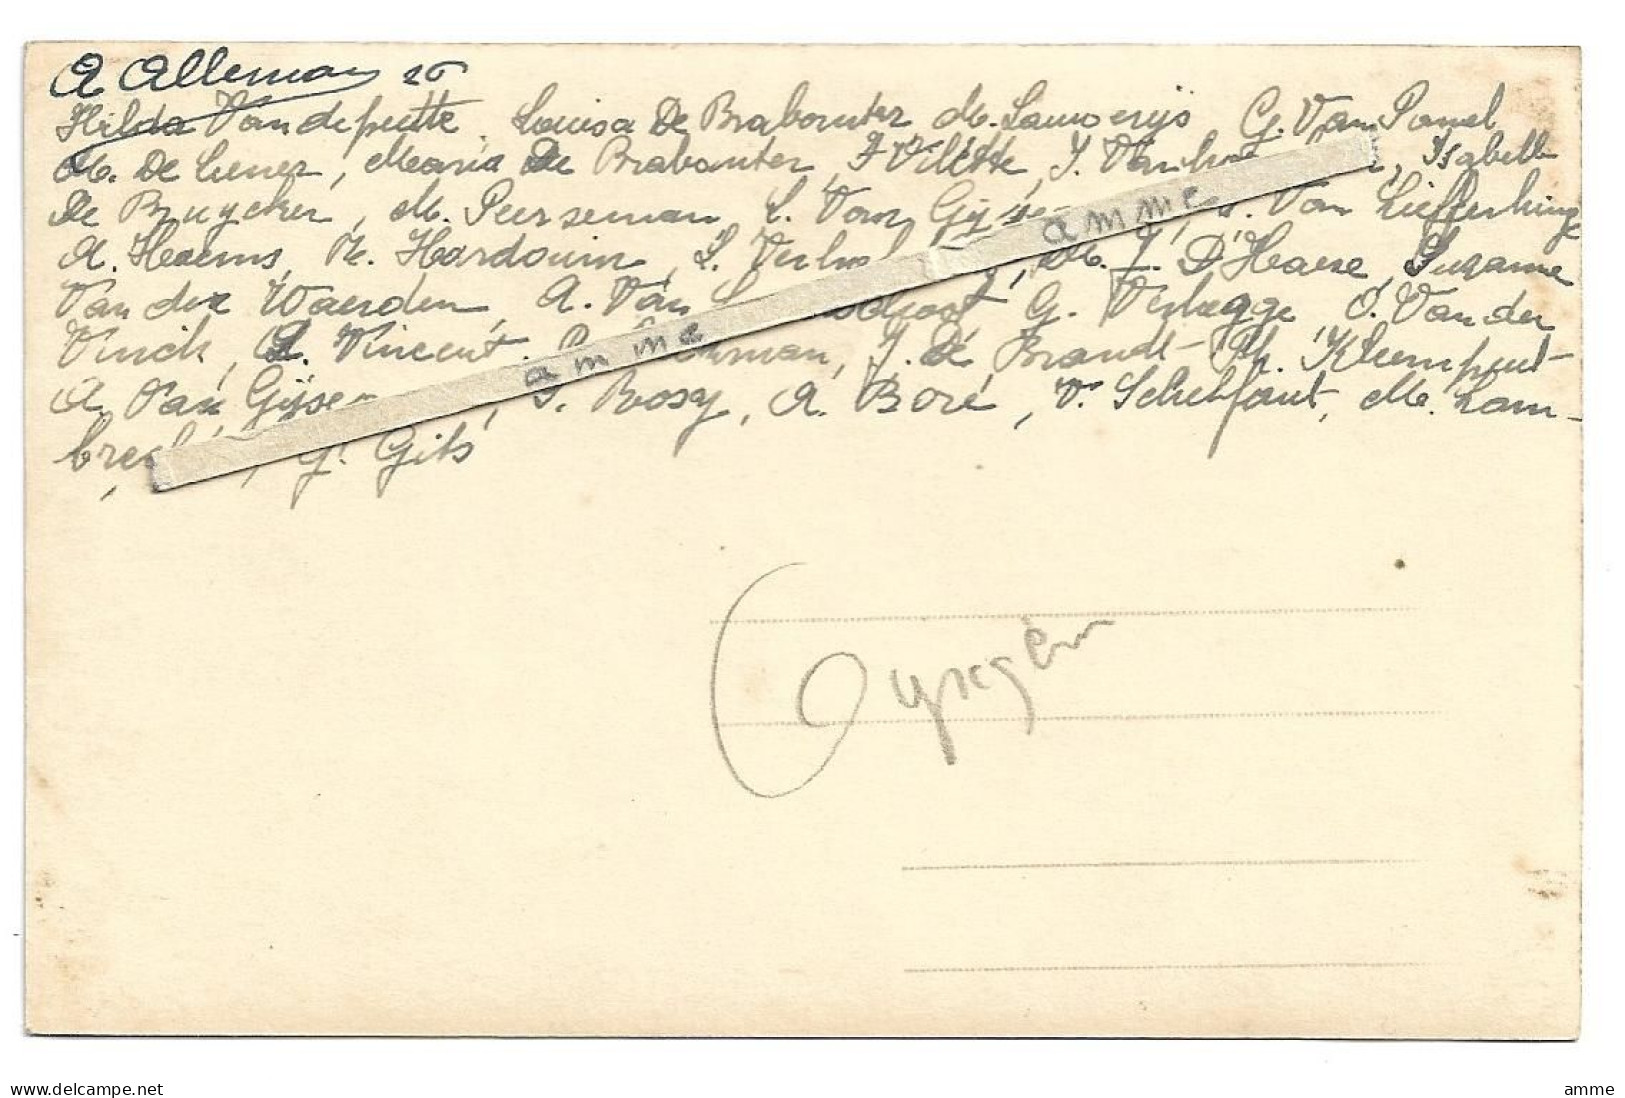 A Alleman 26
Hilda Vandeputte, Louisa De Brabanter M. Lauwerijs G. Van
M. De Cuner, Maria De Brabanter, J. Vilétte, J. Isabell
De Bruycker, M. Peerseman, L. Van Gijse Van Liefferhinge
A. Haems, R. Hardouin, L. M. J. D'Haese, Suzanne
Van der Waerden, A. Van G. Verhegge J. Van der
Vinck, A. Vincent. man, J. De Brandt - Ph. Klemput
A. Van Gijse J. Rosy, A. Boré, V. Schelfaut, M. Lam-
brec , G. Gits
amme
amme
delcampe.net
amme